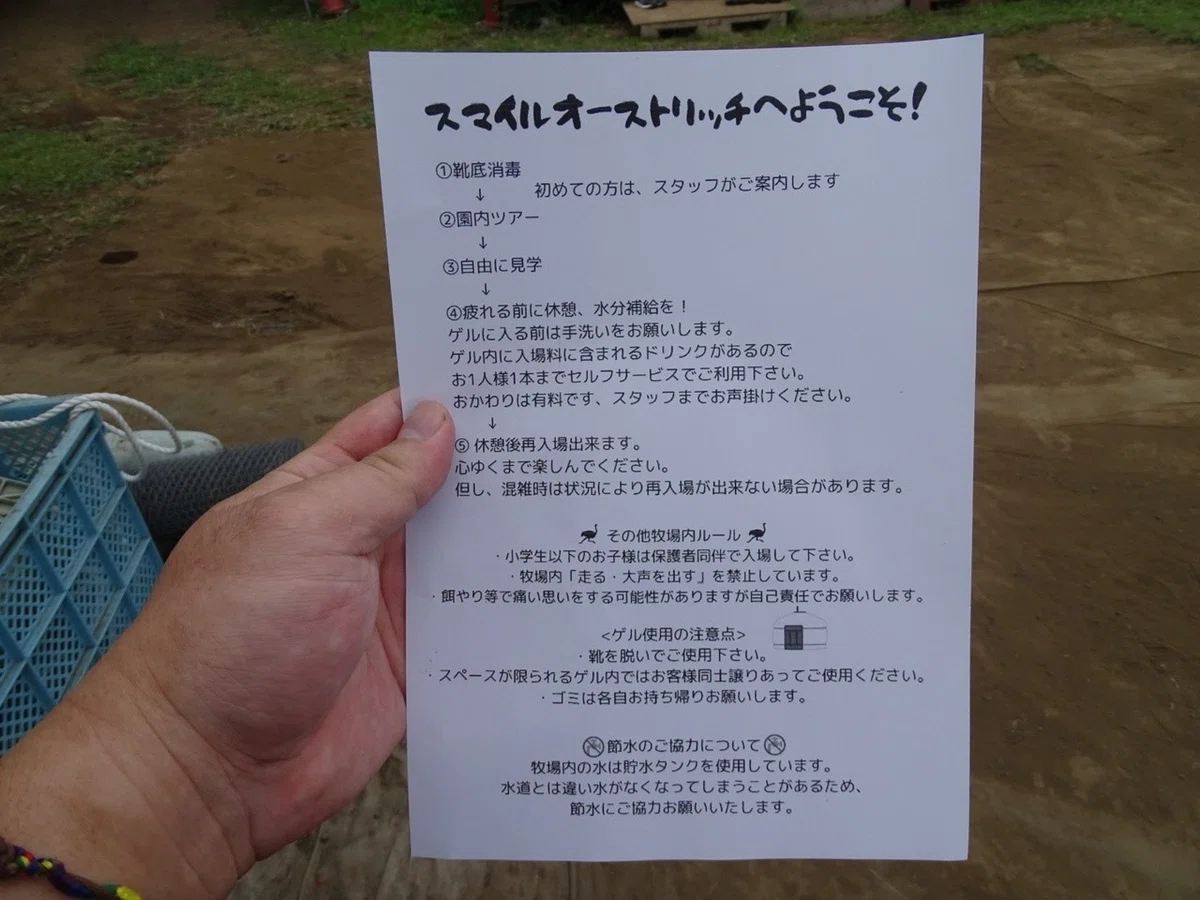 スマイルオーストリッチへようこそ!
①靴底消毒
↓ 初めての方は、スタッフがご案内します
②園内ツアー
↓
③自由に見学
↓
④疲れる前に休憩、水分補給を!
ゲルに入る前は手洗いをお願いします。
ゲル内に入場料に含まれるドリンクがあるので
お1人様1本までセルフサービスでご利用下さい。
おかわりは有料です、スタッフまでお声掛けください。
↓
⑤ 休憩後再入場出来ます。
心ゆくまで楽しんでください。
但し、混雑時は状況により再入場が出来ない場合があります。
その他牧場内ルール
・小学生以下のお子様は保護者同伴で入場して下さい。
・牧場内「走る・大声を出す」を禁止しています。
・餌やり等で痛い思いをする可能性がありますが自己責任でお願いします。
<ゲル使用の注意点>
・靴を脱いでご使用下さい。
・スペースが限られるゲル内ではお客様同士譲りあってご使用ください。
・ゴミは各自お持ち帰りお願いします。
節水のご協力について
牧場内の水は貯水タンクを使用しています。
水道とは違い水がなくなってしまうことがあるため、
節水にご協力お願いいたします。